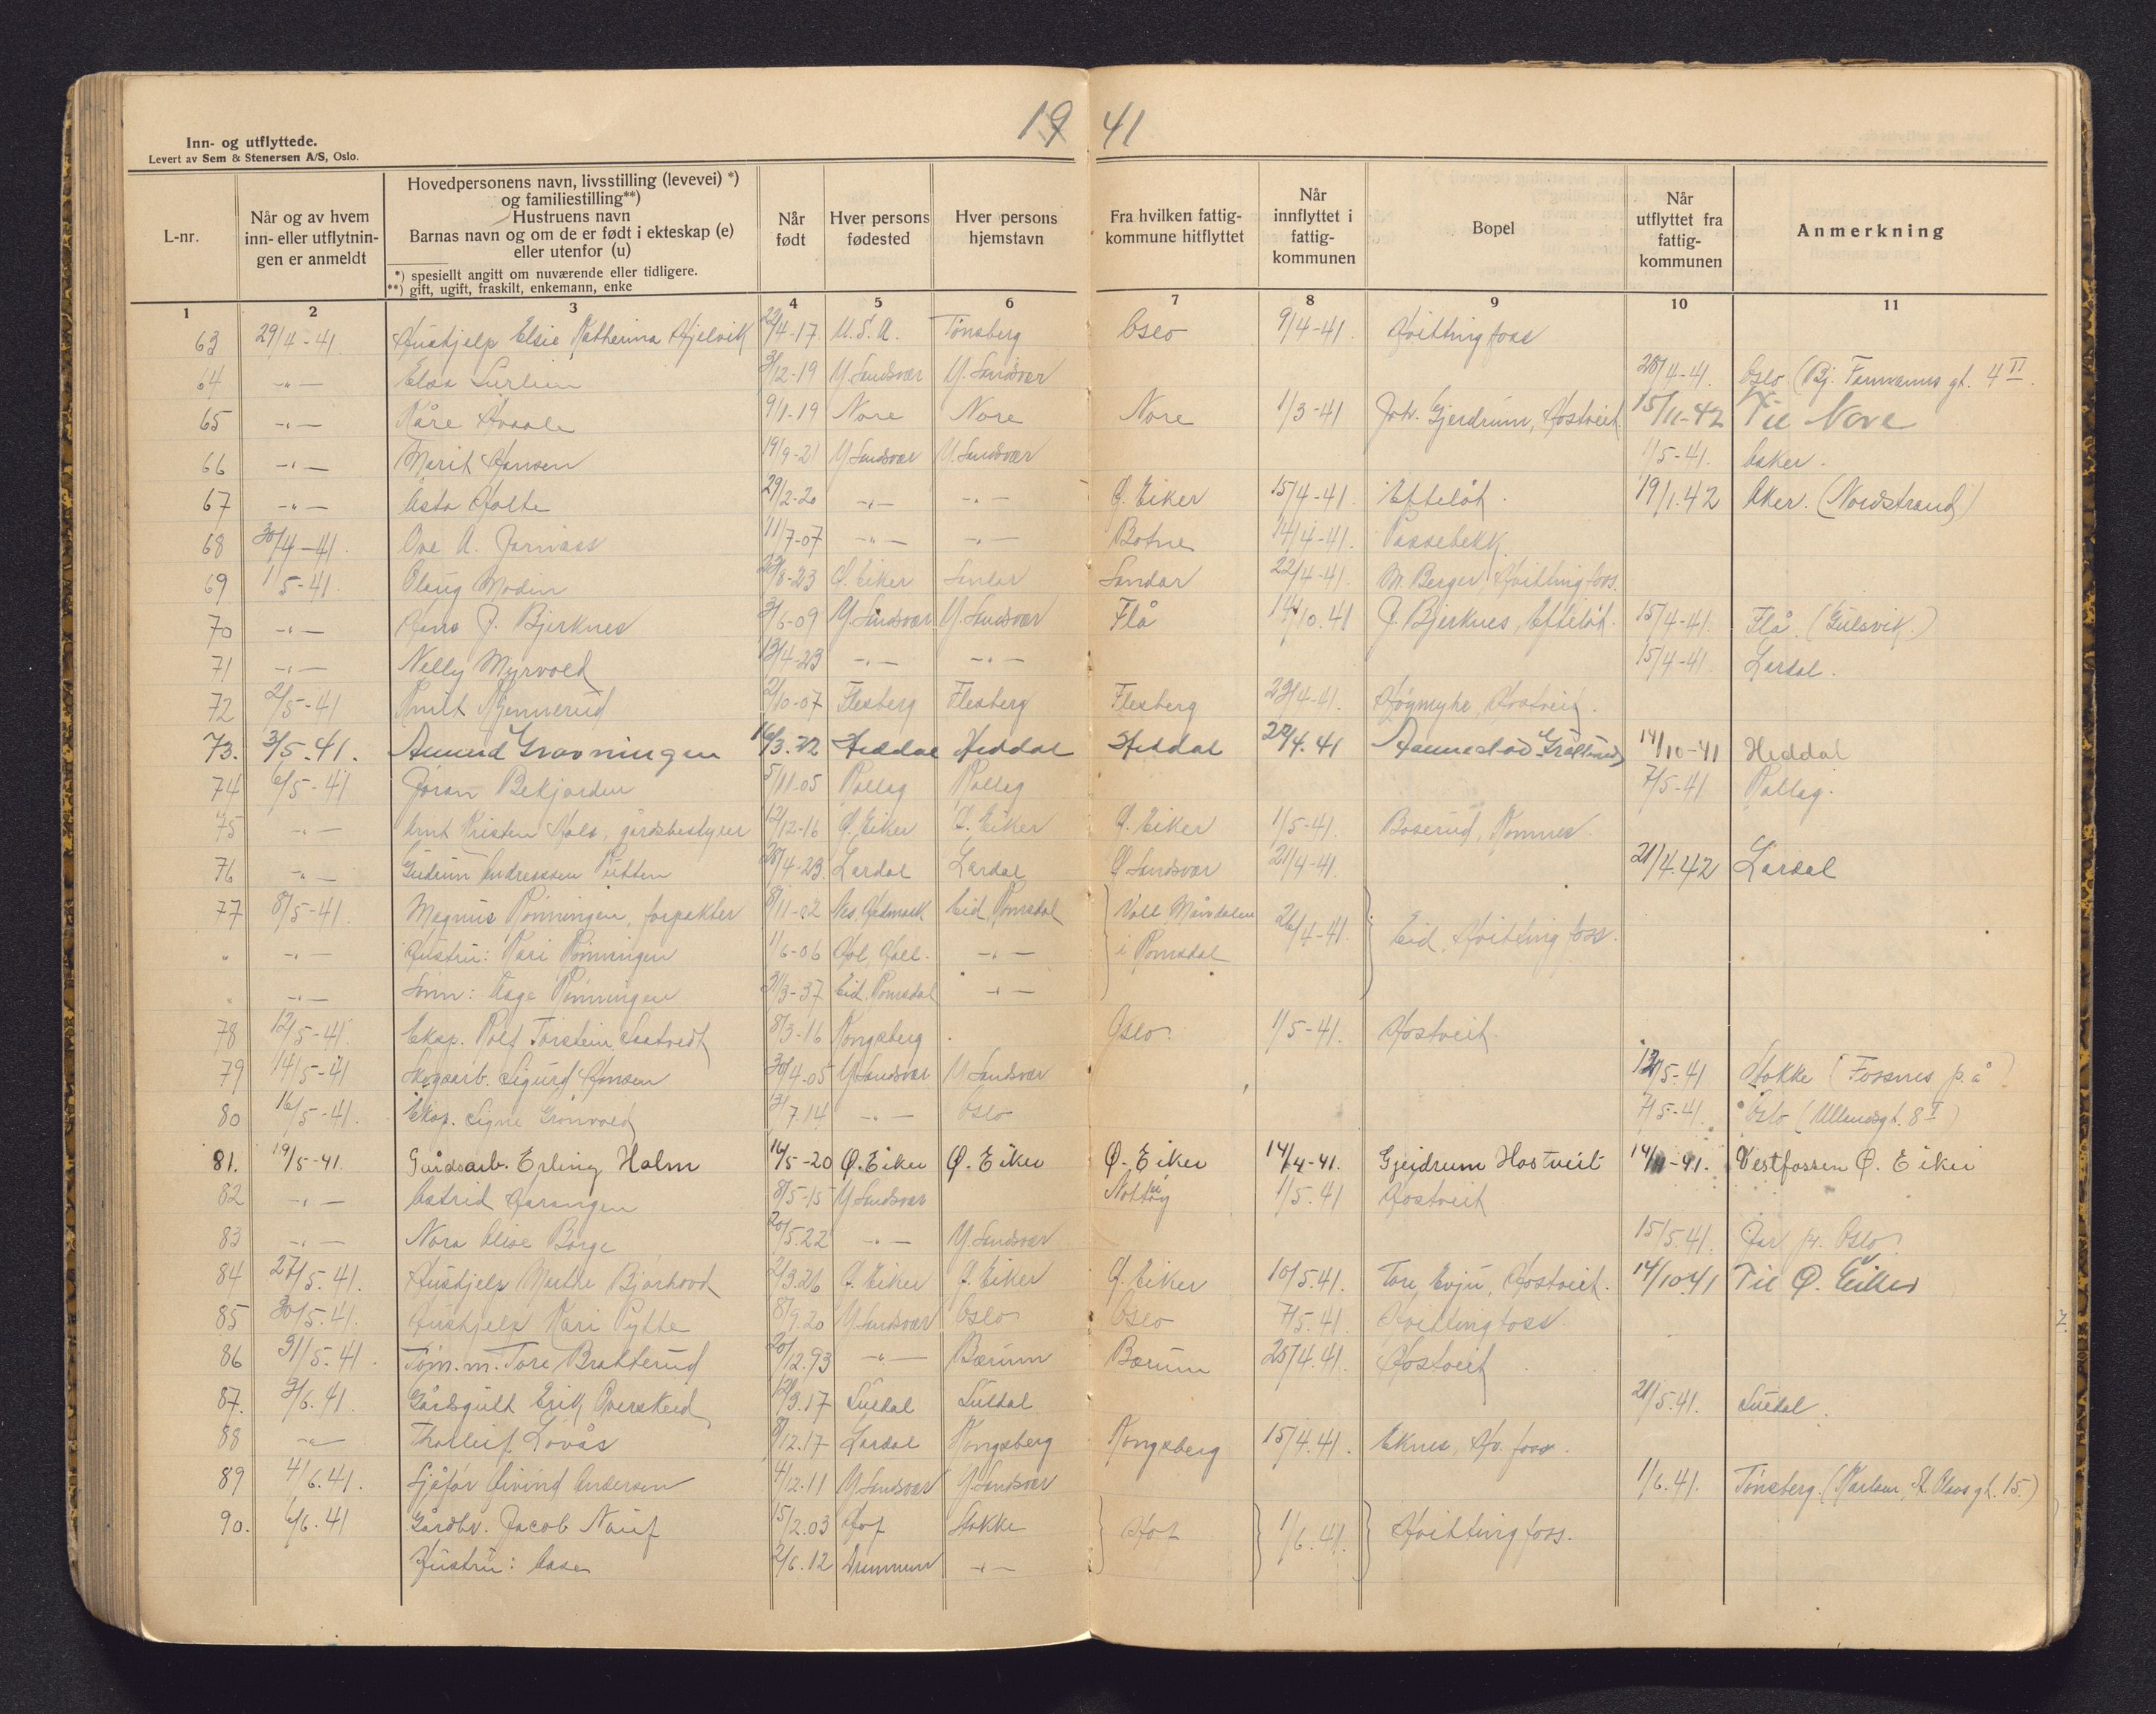 19 41
Inn- og utflyttede.
Levert av Sem & Stenersen A/S, Oslo.
L-nr.
Når og av hvem
inn- eller utflytnin-
gen er anmeldt
Hovedpersonens navn, livsstilling (levevei) *)
og familiestilling**)
Hustruens navn
Barnas navn og om de er født i ekteskap (e)
eller utenfor (u)
*) spesiellt angitt om nuværende eller tidligere.
**) gift, ugift, fraskilt, enkemann, enke
Når
født
Hver persons
fødested
Hver persons
hjemstavn
Fra hvilken fattig-
kommune hitflyttet
Når
innflyttet i
fattig-
kommunen
Bopel
Når
utflyttet fra
fattig-
kommunen
Anmerkning
1 2 3 4 5 6 7 8 9 10 11
63 29/4-41 Hushjelp Elsie Katherina Hjelvik 22/4-17 U.S.A. Tönsberg Oslo 9/4-41 Hvittingfoss
64 -"- Elsa 3/12-19 Y. Sandsvær Y. Sandsvær 28/4-41. Oslo (Bj. gt. 4 II.
65 -"- Kåre 9/1-19 Nore Nore Nore 1/3-41 Joh. Gjerdrum, Hostveit 15/11-42 Til Nore
66 -"- Marit Hansen 19/9-21 Y. Sandsvær Y. Sandsvær 1/5-41. Asker.
67 -"- Åsta Holte 29/2-20 -"- -"- Ø. Eiker 15/4-41. Efteløt. 19/1.42 Aker. (Nordstrand)
68 30/4-41. Ove A. 11/7-07 -"- -"- Botne 14/4-41. Passebekk
69 1/5-41. Olaug Modin 23/8-23 Ø. Eiker Sandar Sandar 22/4-41. M. Berger, Hvittingfoss.
70 -"- Hans J. Bjerknes 3/6-09 Y. Sandsvær Y. Sandsvær Flå 14/10.41 J. Bjerknes, Efteløt. 15/4-41. Flå. (Gulsvik.)
71 -"- Nelly Myrvold 13/4-23 -"- -"- 15/4-41. Lardal.
72 2/5-41 Knut Kjennerud 2/10-07 Flesberg Flesberg Flesberg 23/4-41. Høymyhr, Hostveit.
73. 3/5.41. Amund Grovningen 16/3.22 Heddal Heddal Heddal 22/4.41 14/10-41 Heddal
74 6/5-41 Jøran Bekjorden 5/11-05 Rollag Rollag 7/5-41 Rollag.
75 -"- Kristen Hals, gårdsbestyrer 12/12-16 Ø. Eiker Ø. Eiker Ø. Eiker 1/5-41. Baserud, Komnes.
76 -"- Gudrun Andreassen 28/4-23. Lardal Lardal Ø. Sandsvær 21/4-41. 21/4.42 Lardal
77 8/5-41. Magnus Rönningen, forpakter 8/11-02 Nes, Hedmark Eid, Romsdal Voll Måndalen 26/4-41. Eid, Hvittingfoss.
" -"- Hustru: Kari Rönningen 1/6-06 Hol, Hall. -"- i Romsdal
-"- Sönn: Aage Rönningen 31/3-37 Eid. Romsdal -"-
78 12/5-41. Eksp. Rolf Torstein Saatvedt 8/3-16 Kongsberg Oslo. 1/5-41. Hostveit.
79 14/5-41 Skogsarb. Sigurd Hansen 30/4-05 Y. Sandsvær Y. Sandsvær 13/5-41 Stokke (Fossnes p.å)
80 16/5-41. Eksp. Signe Grönvold 3/7.14 -"- Oslo 7/5-41. Oslo (Ullandsgt. 8 I)
81. 19/5-41. Gårdsarb. Erling Holm 16/5-20 Ø. Eiker Ø. Eiker Ø. Eiker 14/4-41. Gjerdrum Hostveit 14/11-41. Vestfossen Ø. Eiker
82 -"- Astrid 8/5-15 Y. Sandsvær Nötterøy 1/5.41 Hostveit
83 -"- Nora Elise Borge 20/5.22 -"- Y. Sandsvær 15/5.41. Jar pr. Oslo.
84 27/5.41. Hushjelp Marthe Bjorhovd 2/3.26 Ø. Eiker Ø. Eiker Ø. Eiker 10/5.41. Tore Evju, Hostveit. 14/10.41 Til Ø. Eiker
85 30/5.41. Hushjelp Kari Pytte 8/9.20 Y. Sandsvær Oslo Oslo 7/5.41. Hvittingfoss.
86 31/5.41. Töm.m. Tore Bratterud 20/12.93 -"- Bærum Bærum 25/4.41. Hostveit
87. 3/6.41. Gårdsgutt Erik Överskeid 12/3.17 Suldal Suldal 21/5.41. Suldal.
88 -"- Thorleif Lövås 8/12.17 Lardal Kongsberg Kongsberg 15/4.41. Eknes, Hv. foss.
89 4/6.41. Sjåför Eivind Andersen 4/12.11 Y. Sandsvær Y. Sandsvær 1/6.41. Tönsberg. (St. Olavs gt. 15.)
90. 6/6.41 Gårdbr. Jacob 15/2.03 Hof Stokke Hof 1/6.41. Hvittingfoss.
Hustru: Aase 2/6.12 Drammen -"-